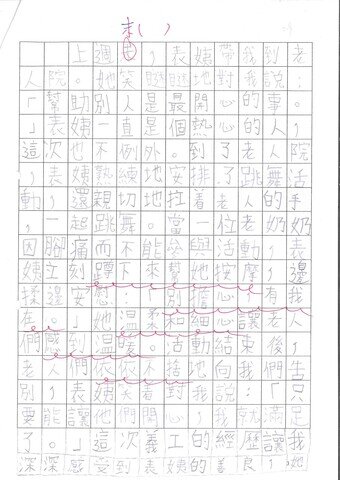 末( )
上週四，表姨帶我到老
人院。她笑瞇瞇地對我說：
「幫助別人是最開心的事。
」表姨一直是個熱心的人，
這次也不例外。到了老人院
，表姨熟練地安排了跳舞活
動，還親切地拉着老人的手
，一起跳舞。當一位老奶奶
因腳痛而不能參與活動，表
姨立刻蹲下來幫她按摩，邊
揉邊安慰：「別擔心，有我
在。」她溫柔和細心讓老人
們感到溫暖。活動結束後，
老人們依依不捨地向我們告
別，表姨笑着對我說：「只
要能讓他們開心，我就滿足
了。」這次義工的經歷讓我
深深感受到表姨的善良，她